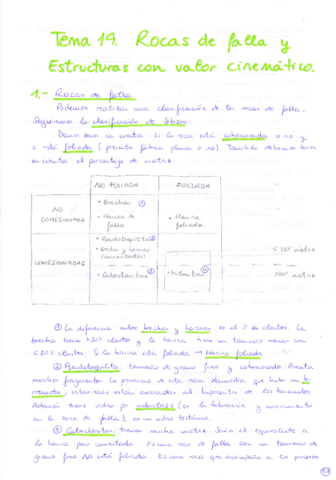 Tema 19. Rocas de falla y
Estructuras con valor cinemático.
1.- Rocas de falla
Podemos realizar una clasificación de la rocas de falla.
Seguiremos la clasificación de Sibson.
Debemos tener en cuenta si la roca está cohesionada o no y
si está foliada ( presenta fábrica plana o no). También debemos tener
en cuenta el porcentaje de matriz
NO FOLIADA FOLIADA
NO COHESIONADA
• Brechas ①
• Harina de falla
• Harina foliada
COHESIONADAS
• Pseudotaquilitas ②
• Brecha y harinas (cementadas)
• Cataclasitas ③
• Milonitas ④
matriz
① La diferencia entre brechas y harinas es el % de clastos. La
brecha tiene >30% clastos y la harina tiene un tamaño menor con
<30% clastos. Si la harina está foliada → harina foliada
② Pseudotaquilita: tamaño de grano fino y cohesionada. Presenta
muchos fragmentos. La presencia de esta roca demuestra que hubo un te-
rremoto,
Además tiene vidrio por
en la zona de falla), es un vidrio tectónico.
③ Cataclasitas: tienen mucha matriz. Sería el equivalente a
la harina pero cementada. Es una roca de falla con un tamaño de
grano fino No está foliada. Es una roca que acompaña a la